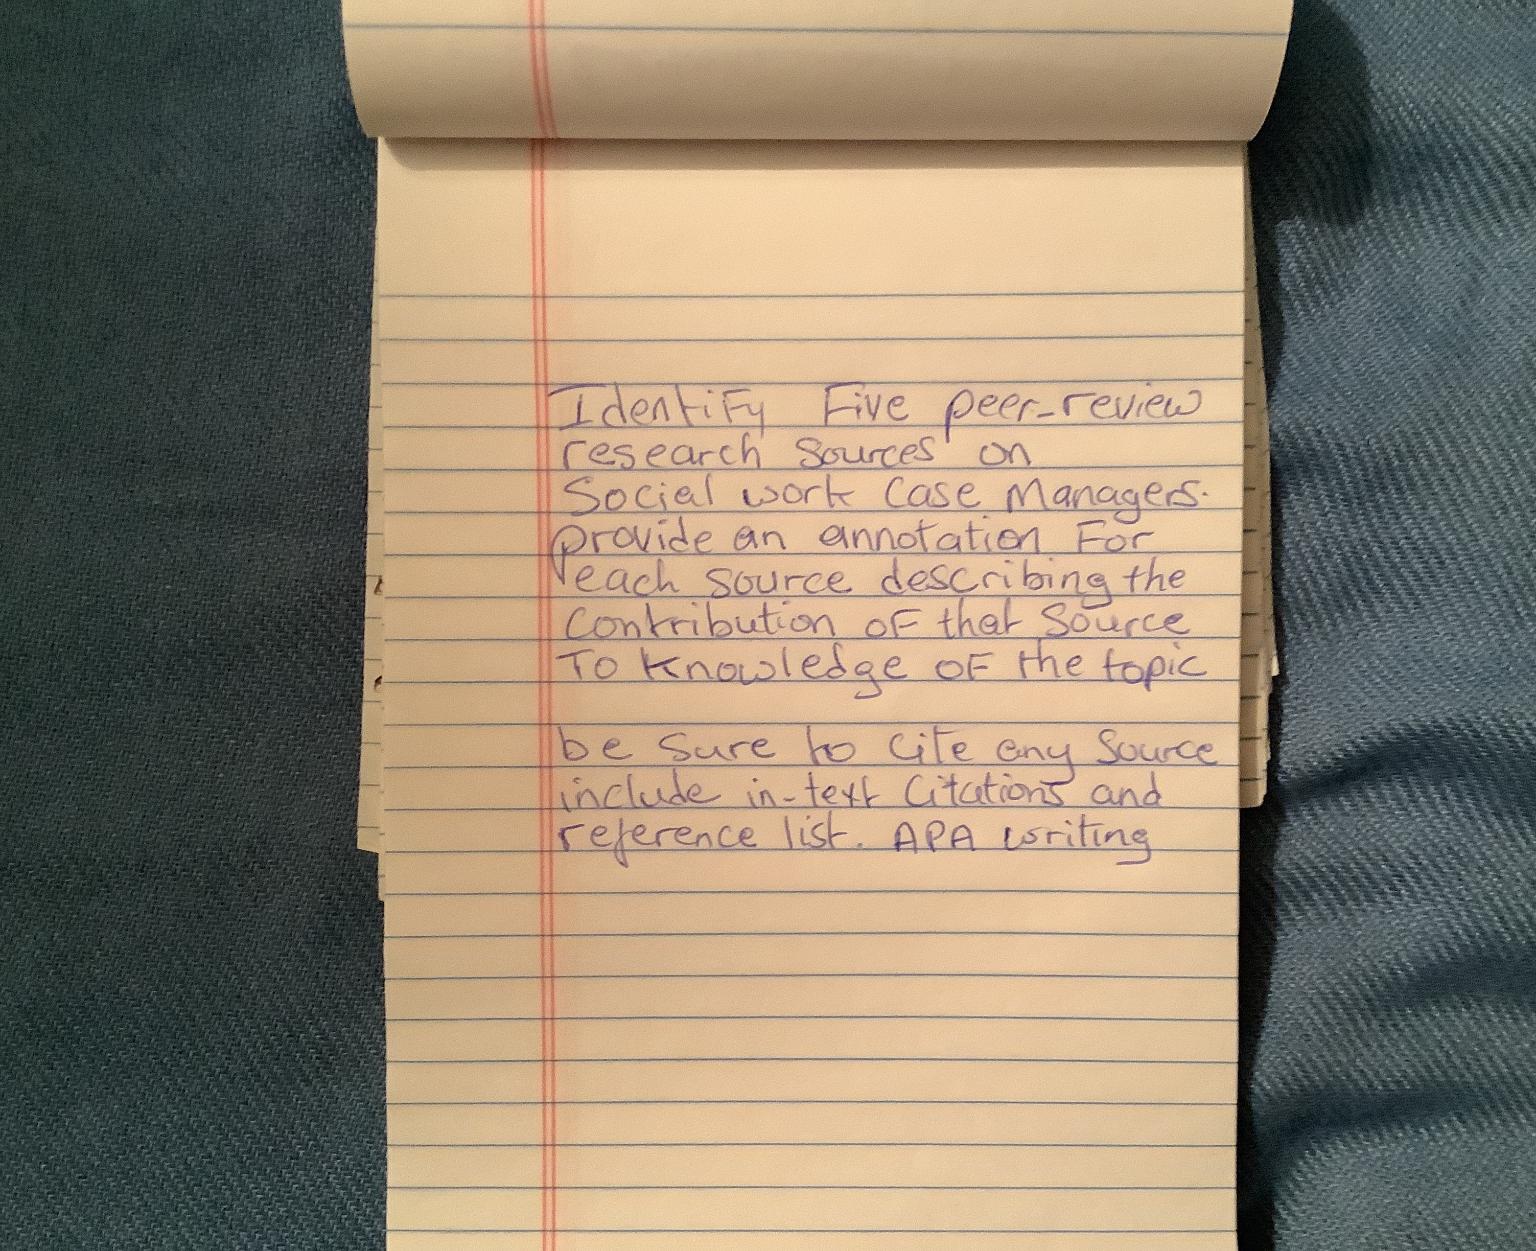 Identify Five peer-review
research sources on
Social work Case Managers.
provide an annotation For
each source describing the
Contribution of that Source
To Knowledge of the topic
be Sure to Cite any Source
include in-text Citations and
reference list. APA writing